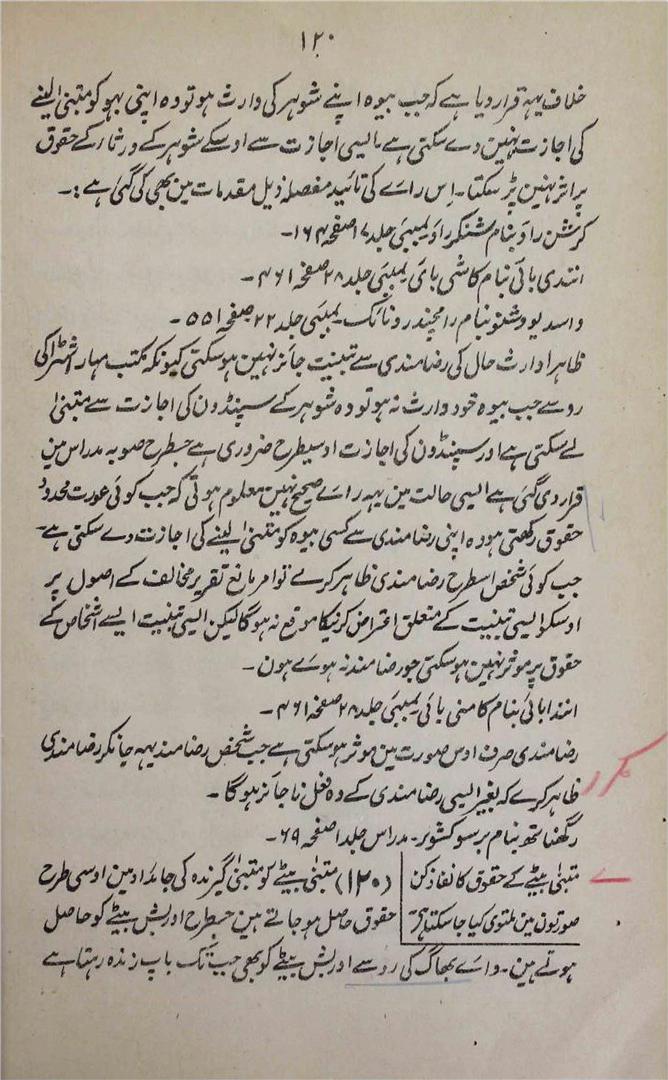 ۱۲۰
خلاف یہہ قرار دیا ہے کہ جب بیوہ اپنے شوہر کی وارث ہو تو وہ اپنی بہو کو متبنیٰ لینے
کی اجازت نہین دے سکتی ہے ۔ ایسی اجازت سے اوسکے شوہر کے ورثار کے حقوق
پر اثر نہین پڑ سکتا ۔ اِس راے کی تائید مفصلہ ذیل مقدمات مین بھی کی گئی ہے :۔
کرشن راؤ بنام شنکر راؤ بمبئی جلد ۱۷ صفحہ ۱۶۴۔
انندی بائی بنام کاشی بائی بمبئی جلد ۲۸ صفحہ ۴۶۱ ۔
واسدیو وشنو بنام رامچندر ونائک ۔ بمبئی جلد ۲۲ ۔ صفحہ ۵۵۱ ۔
ظاہرا وارث حال کی رضامندی سے تبنیت جائز نہین ہو سکتی کیونکہ مکتب مہاراشٹرا کی
رو سے جب بیوہ خود وارث نہ ہو تو وہ شوہر کے سپنڈون کی اجازت سے متبنیٰ
لے سکتی ہے اور سپنڈون کی اجازت اوسیطرح ضروری ہے جسطرح صوبہ مدراس مین
قرار دی گئی ہے ایسی حالت مین یہہ راے صحیح نہین معلوم ہوتی کہ جب کوئی عورت محدود
حقوق رکھتی ہو وہ اپنی رضامندی سے کسی بیوہ کو متبنیٰ لینے کی اجازت دے سکتی ہے ۔
جب کوئی شخص اسطرح رضامندی ظاہر کرے تو امر مانع تقریر مخالف کے اصول پر
اوسکو ایسی تبنیت کے متعلق اعتراض کرنیکا موقع نہ ہوگا لیکن ایسی تبنیت ایسے اشخاص کے
حقوق پر موثر نہین ہو سکتی جو رضامند نہ ہوے ہون ۔
انندا بائی بنام کاشی بائی بمبئی جلد ۲۸ صفحہ ۴۶۱ ۔
رضامندی صرف اوس صورت مین موثر ہو سکتی ہے جب شخص رضامند یہہ جانکر رضامندی
ظاہر کرے کہ بغیر ایسی رضامندی کے وہ فعل ناجائز ہوگا ۔
رگھناتھ بنام برسو کشور ۔ مدراس جلد ۱ صفحہ ۶۹ ۔
متبنیٰ بیٹے کے حقوق کا نفاذ کن
صورتون مین ملتوی کیا جا سکتا ہے
(۱۲۰) متبنیٰ بیٹے کو متبنیٰ گیرندہ کی جائداد مین اوسی طرح
حقوق حاصل ہو جاتے ہین جسطرح اوریش بیٹے کو حاصل
ہوتے ہین ۔ داے بھاگ کی رو سے اوریش بیٹے کو بھی جب تک باپ زندہ رہتا ہے